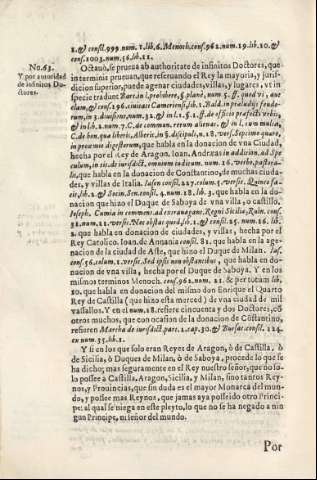 2. & consil. 999. num. 1. lib. 6. Menoch. cons. 962. num. 19. lib. 10. &
cons. 1003. num. 56. lib. 11.
No. 63.
Y por autoridad
de infinitos Do-
ctores.
Octauò, se prueua ab authoritate de infinitos Doctores, que
in terminis prueuan, que reseruando el Rey la mayoria, y juris-
dicion superior, puede agenar ciudades, villas, y lugares, vt in
specie tradūt Bart. in l. prohibere, §. planè, num. 5. ff. quod vi, aut
clam, & cons. 196. ciuitas lib. 1. Bald. in præludijs feudo-
rum,
C. de bon. quæ liberis, Alberic. in §. discipuli, n. 18. vers. Septimo quæro,
in proœmio digestorum, que habla en la donacion de vna Ciudad,
hecha por el Rey de Aragon. Ioan. Andræas in addition. ad Spe
culum,
que habla en la donacion de Constantino, de muchas ciuda-
des, y villas de Italia.
que habla en la do-
nacion que hizo el Duque de Saboya de vna villa, o castillo,
Ioseph. Cumia in commen. ad extrauagant. Regni Siciliæ,
2. que habla en donacion de ciudades, y villas, hecha por el
Rey Catolico. Ioan. de Annania consil. 81. que habla en la age-
nacion de la ciudad de Aste, que hizo el Duque de Milan.
que habla en do-
nacion de vna villa, hecha por el Duque de Saboya. Y en los
mismos terminos Menoch. cons. 962. num. 21. & per totum lib.
10. que habla en donacion del mismo don Enrique el Quarto
Rey de Castilla (que hizo esta merced) de vna ciudad de mil
vassallos. Y en el num. 18. refiere cincuenta y dos Doctores, cō
otros muchos, que con ocasion de la donacion de Cōstantino,
refieren Marcha de iurisdict. part. 1. cap. 30. & Bursat. consil. 124.
ex num. 35. lib. 1.
Y si en los que solo eran Reyes de Aragon, ò de Castilla, ò
de Sicilia, ò Duques de Milan, ò de Saboya, procede lo que se
ha dicho; mas seguramente en el Rey nuestro señor, que no so-
lo possee à Castilla, Aragon, Sicilia, y Milan, sino tantos Rey-
nos, y Prouincias, que sin duda es el mayor Monarca del mun-
do, y possee mas Reynos, que jamas aya posseido otro Princi-
pe: al qual se niega en este pleyto, lo que no se ha negado a nin
gun Principe, ni señor del mundo.
Por